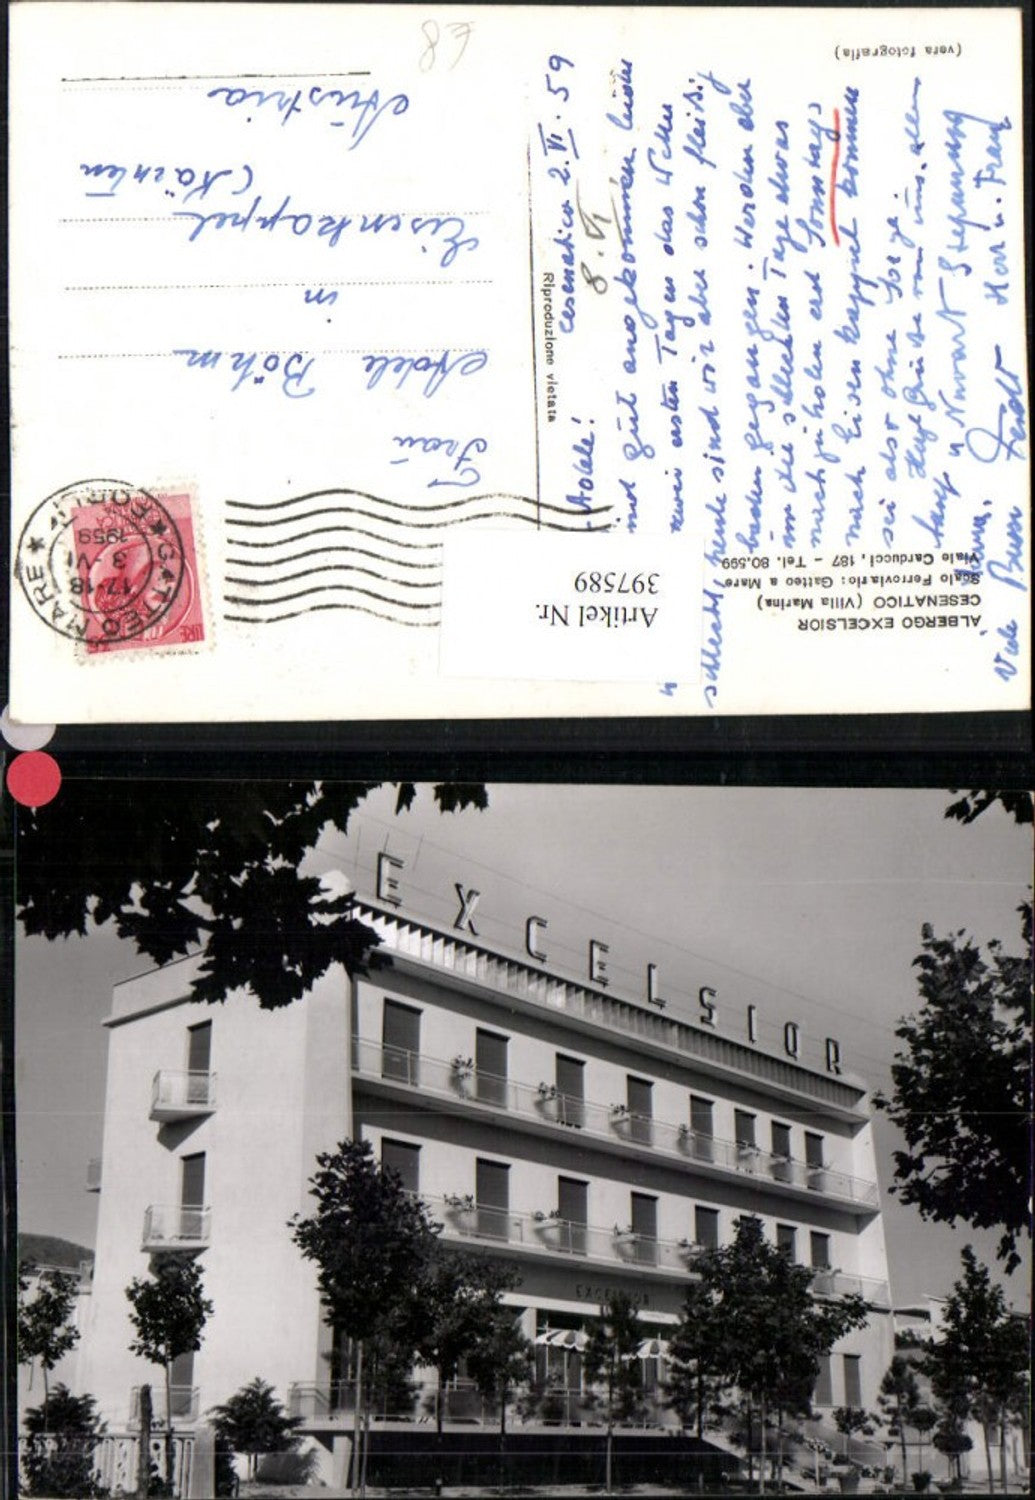 (vera fotografia)
€8
Cesenatico 2.VI.59
8.VI
Adele!
sind gut angekommen leider
ersten Tagen das Wetter
schlecht heute sind wir aber schon fleißig
baden gegangen. Werden aber
um die schlechten Tage etwas
nachzuholen erst Sonntag
nach Eisenkappel kommen
sei also ohne Sorge.
Herzl. Grüße von uns allen
Herr u. Frau
Viale
Riproduzione vietata
Frau
Adele Böhm
in
Eisenkappel
(Kärnten
Austria
GATTEO MARE * FORLI *
17-18
3-VI
1959
LIRE
Artikel Nr.
397589
ALBERGO EXCELSIOR
CESENATICO (Villa Marina)
Scalo Ferroviario: Gatteo a Mare
Viale Carducci, 187 - Tel. 80.599
EXCELSIOR
EXCELSIOR